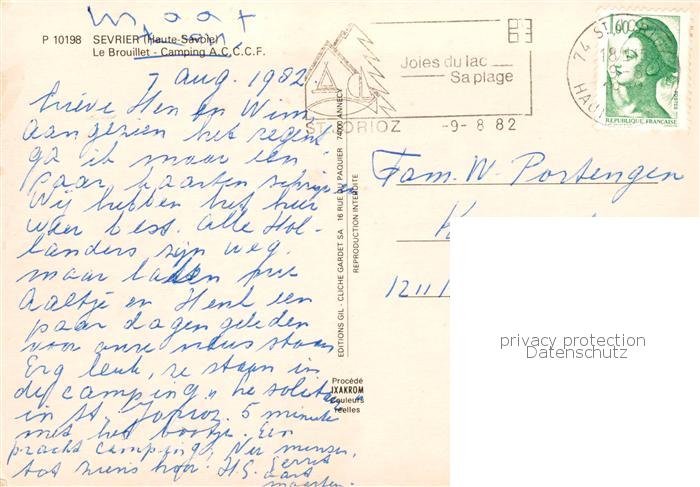 Maart
P 10198 SEVRIER (Haute-Savoie)
Le Brouillet - Camping A.C.C.C.F.
7 aug. 1982.
Lieve Hen en Wim,
aangezien het regent
ga ik maar een
paar kaarten schrijven
Wij hebben het hier
weer best. Alle Hol-
landers zijn weg.
maar
Aaltje en Henk een
paar dagen geleden
voor onze neus staan
Erg leuk, ze staan in
de camping "
in St. Jorioz. 5 minuten
met het bootje. Een
pracht camping.
tot ziens hoor! H.G. Gerrit
Aart
Maarten.
EDITIONS GIL - CLICHE GARDET SA 16 RUE DU PAQUIER 74000 ANNECY
REPRODUCTION INTERDITE
Procédé
IXAKROM
Couleurs
réelles
Joies du lac
Sa plage
ST JORIOZ -9-8 82
74 ST
18
HAU
1,60
REPUBLIQUE FRANÇAISE
Fam. W. Portengen
K
1211
privacy protection
Datenschutz